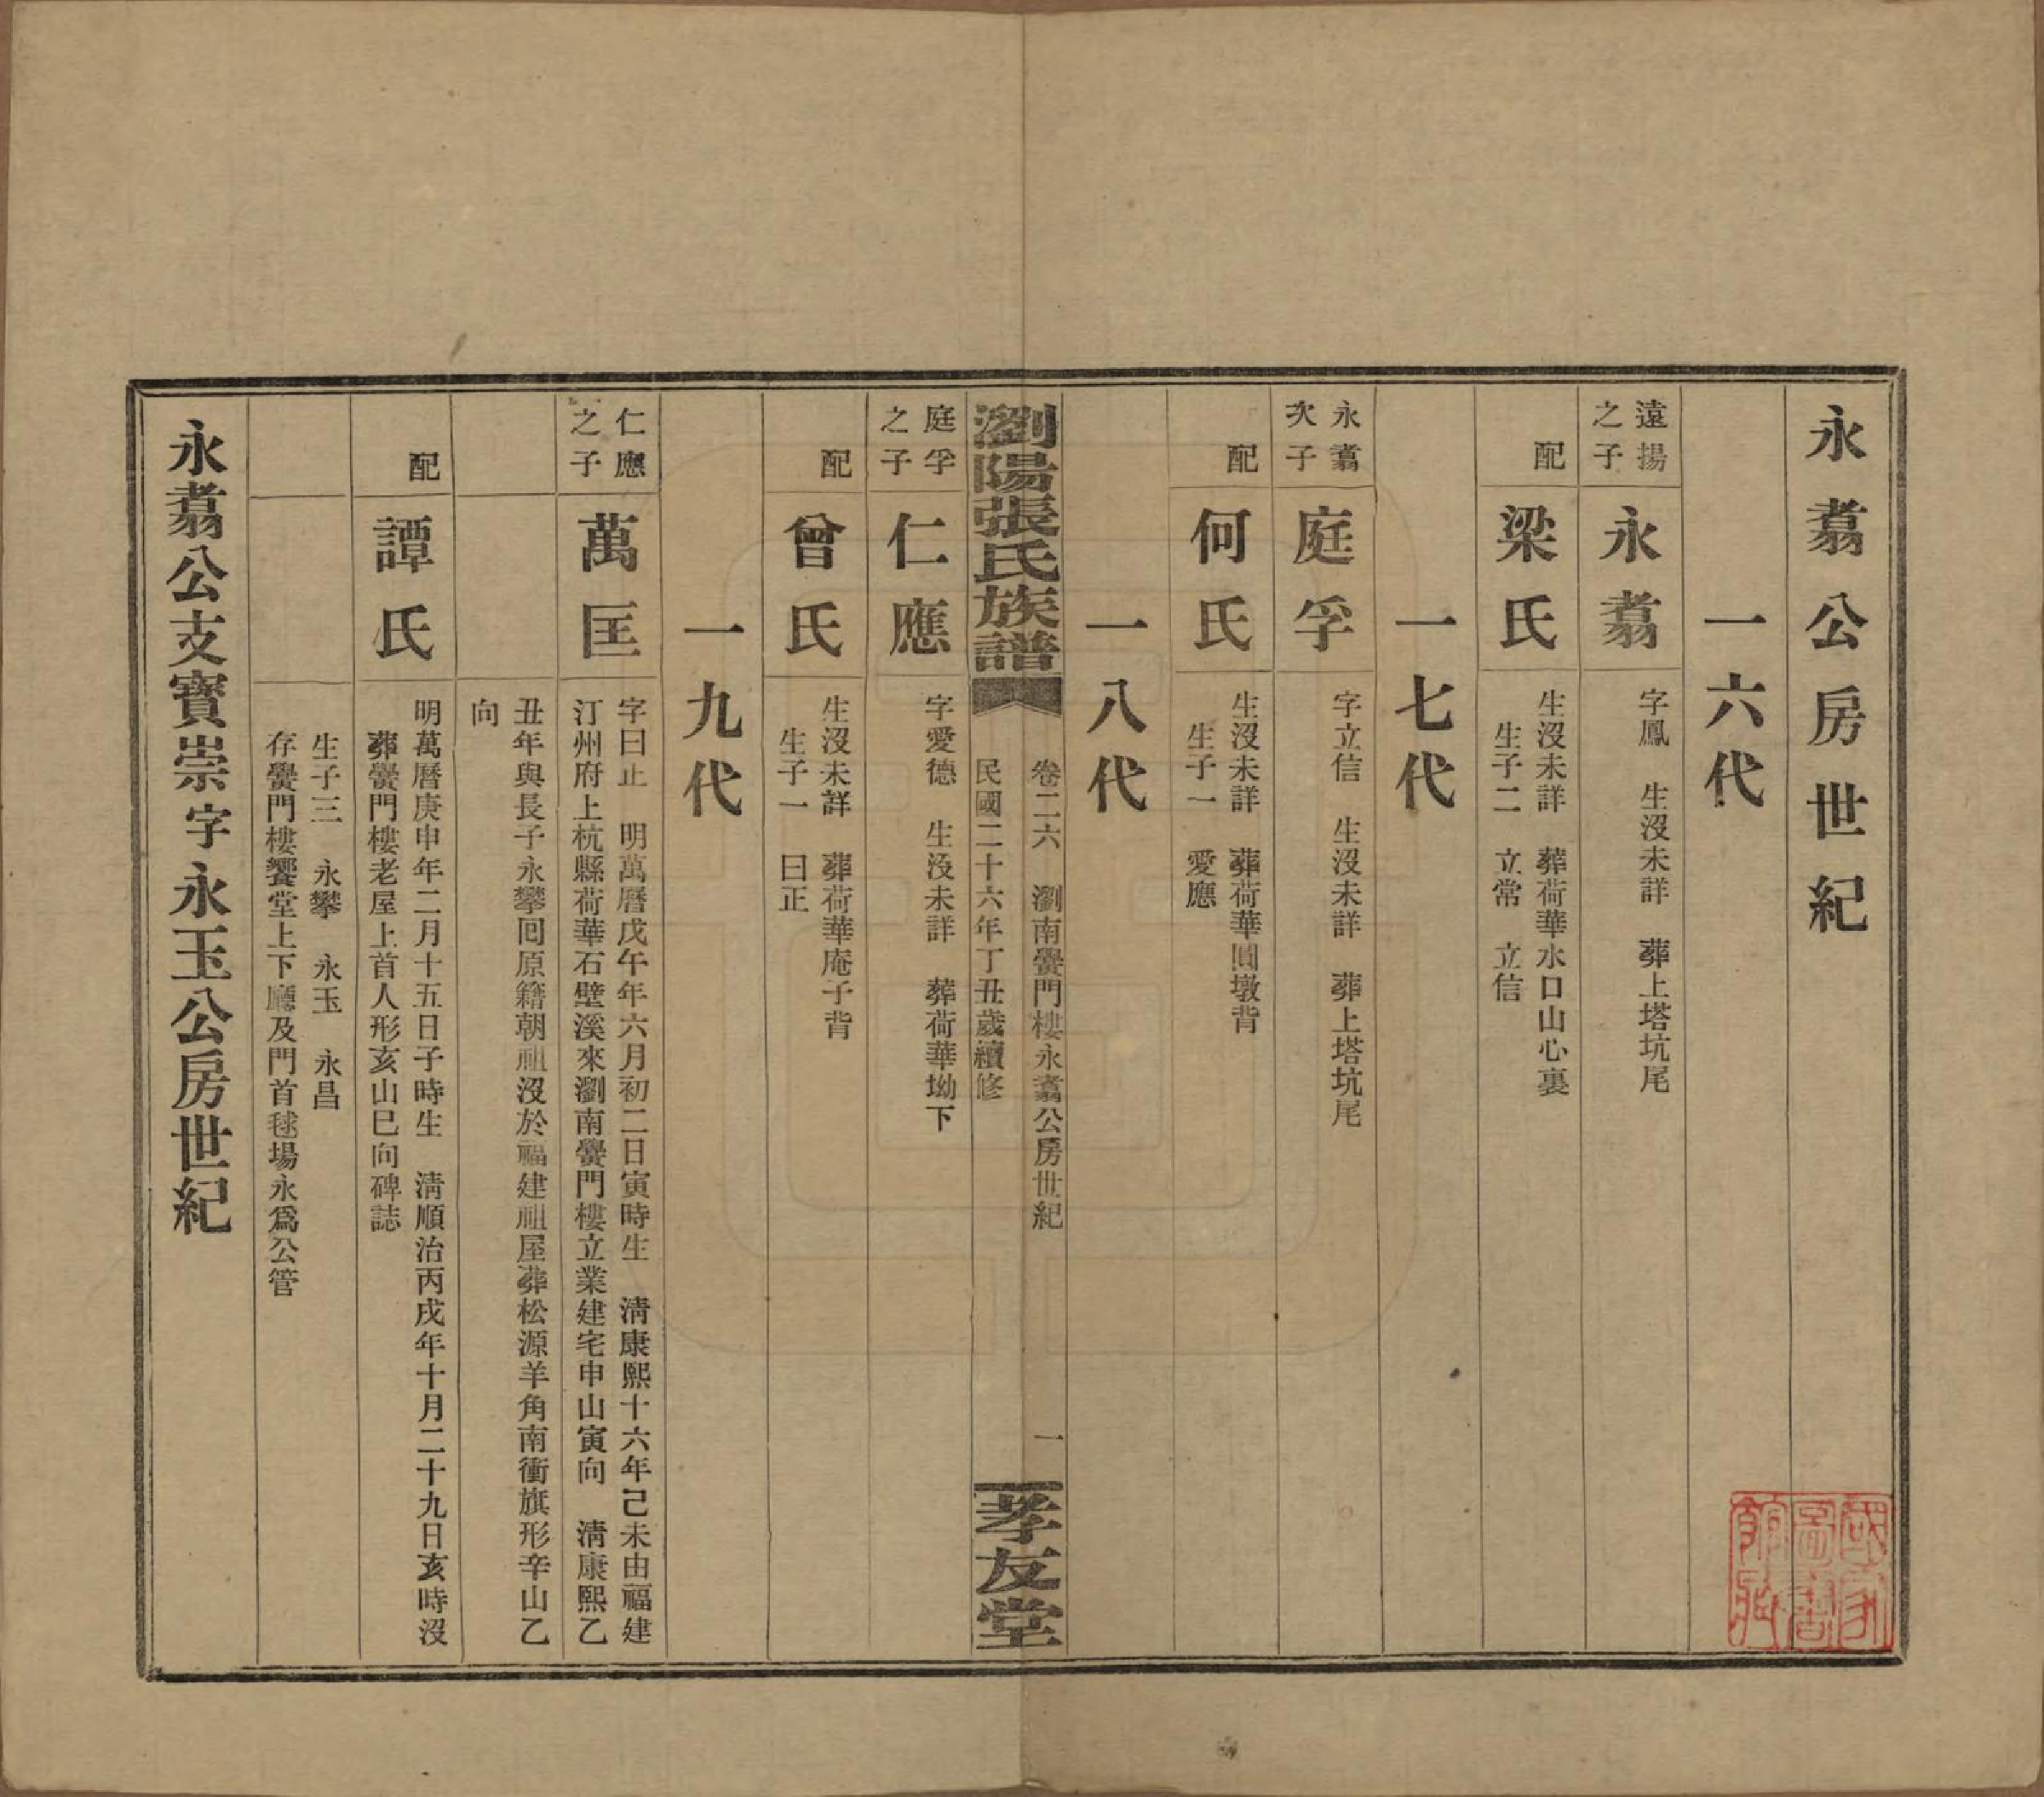 永翥公房世紀
一六代
遠揚之子
永翥
字鳳　生沒未詳　葬上塔坑尾
配
梁氏
生沒未詳　葬荷華水口山心裏
生子二　立常　立信
一七代
永翥次子
庭孚
字立信　生沒未詳　葬上塔坑尾
配
何氏
生沒未詳　葬荷華圓墩背
生子一　愛應
一八代
瀏陽張氏族譜
卷二六　瀏南爨門樓永翥公房世紀
一
民國二十六年丁丑歲續修
孝友堂
庭孚之子
仁應
字愛德　生沒未詳　葬荷華坳下
配
曾氏
生沒未詳　葬荷華庵子背
生子一　曰正
一九代
仁應之子
萬匡
字曰止　明萬曆戊午年六月初二日寅時生　清康熙十六年己未由福建
汀州府上杭縣荷華石壁溪來瀏南爨門樓立業建宅申山寅向　清康熙乙
丑年與長子永攀回原籍朝祖沒於福建祖屋葬松源羊角南衝旗形辛山乙
向
配
譚氏
明萬曆庚申年二月十五日子時生　清順治丙戌年十月二十九日亥時沒
葬爨門樓老屋上首人形亥山巳向碑誌
生子三　永攀　永玉　永昌
存爨門樓饗堂上下廳及門首毬場永爲公管
永翥公支寶崇字永玉公房世紀
國家圖書館藏